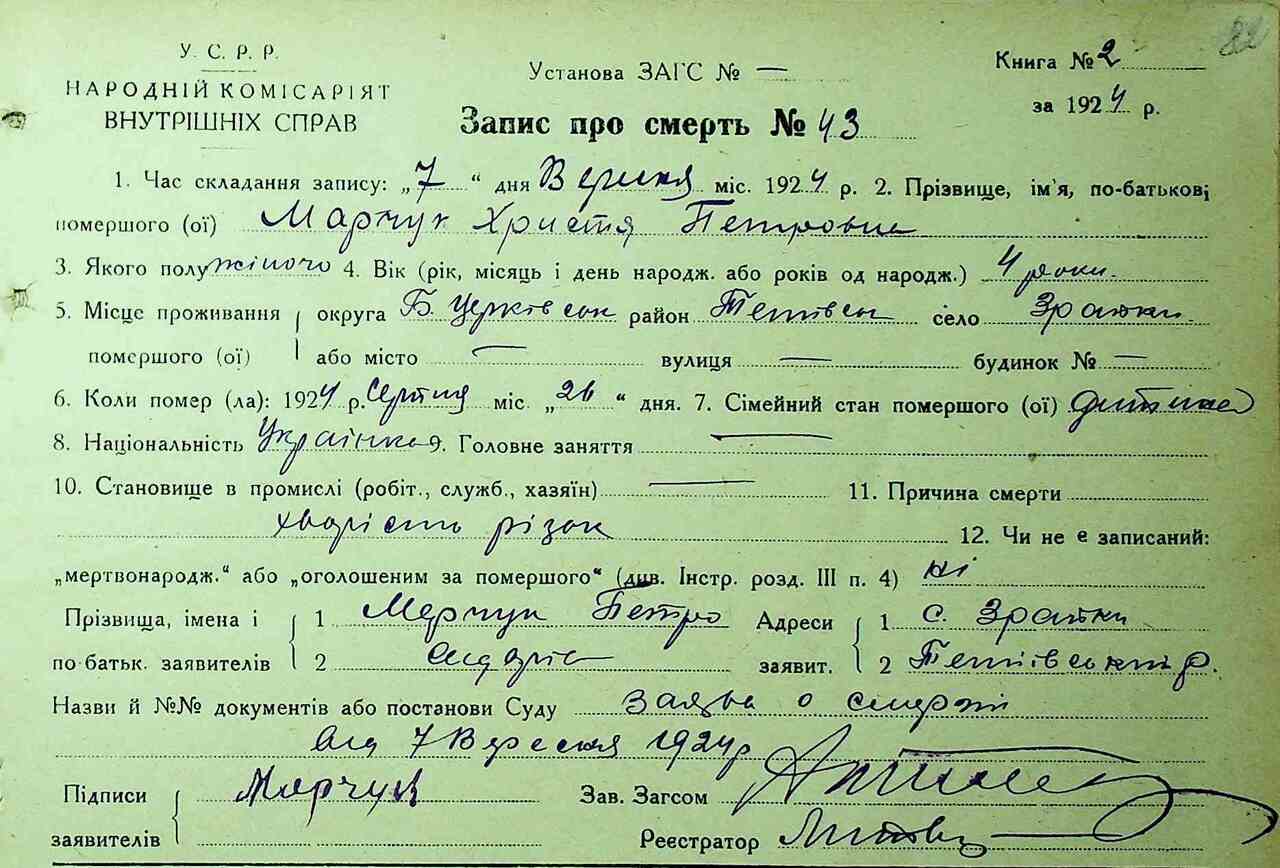 82
У. С. Р. Р.
НАРОДНІЙ КОМІСАРІЯТ
ВНУТРІШНІХ СПРАВ
Установа ЗАГС № —
Книга № 2
за 1924 р.
Запис про смерть № 43
1. Час складання запису: „7“ дня Вересня міс. 1924 р. 2. Прізвище, ім'я, по-батькові
помершого (ої) Марчук Христя Петровна
3. Якого полу жіночо 4. Вік (рік, місяць і день народж. або років од народж.) 4 роки.
5. Місце проживання округа Б Церківськ район Тетівськ село Зрайки
помершого (ої) або місто — вулиця — будинок № —
6. Коли помер (ла): 1924 р. Серпня міс. „26“ дня. 7. Сімейний стан помершого (ої) дитина
8. Національність Українка 9. Головне заняття —
10. Становище в промислі (робіт., служб., хазяїн) — 11. Причина смерти
хворість різок 12. Чи не є записаний:
„мертвонародж.“ або „оголошеним за помершого“ (див. Інстр. розд. III п. 4) ні
Прізвища, імена і 1 Марчук Петро Адреси 1 с. Зрайки
по батьк. заявителів 2 заявит. 2 Тетівський р.
Назви й №№ документів або постанови Суду заява о смерті
від 7 Вересня 1924 р
Підписи Марчук Зав. Загсом
заявителів Реєстратор